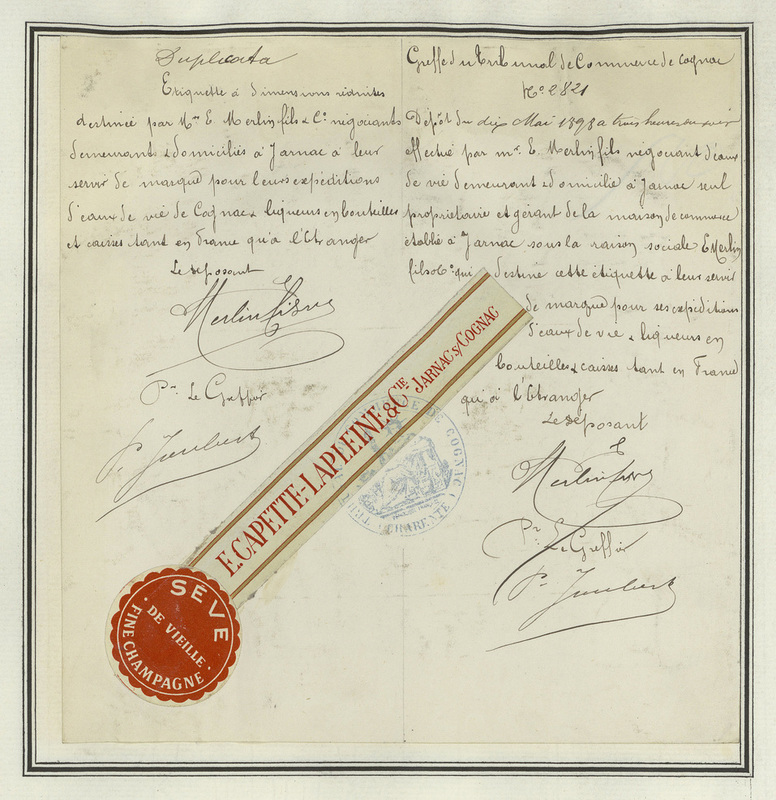 Duplicata
Etiquette à dimensions réduites
destinée par Mrs E. Merlin fils & Co négociants
demeurants & domiciliés à Jarnac à leur
servir de marque pour leurs expéditions
d'eaux de vie de Cognac & liqueurs en bouteilles
et caisses tant en France qu'à l'Etranger
Le déposant
Merlin Fils
Pr Le Greffier
P. Joubert
Greffe du Tribunal de Commerce de Cognac
No 2821
Dépôt du dix Mai 1898 à trois heures du soir
effectué par mr. E. Merlin fils négociant d'eaux
de vie demeurant & domicilié à Jarnac seul
propriétaire et gérant de la maison de commerce
établie à Jarnac sous la raison sociale E Merlin
fils & Co qui destine cette étiquette à leur servir
de marque pour ses expéditions
d'eaux de vie & liqueurs en
bouteilles & caisses tant en France
qu'à l'Etranger
Le déposant
E Merlin Fils
Pr Le Greffier
P. Joubert
E. CAPETTE-LAPLEINE & CIE JARNAC S/ COGNAC
SÈVE
DE VIEILLE
FINE CHAMPAGNE
DE COGNAC (CHARENTE)